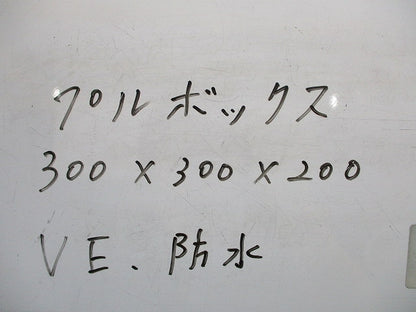 プルボックス
300×300×200
VE、防水